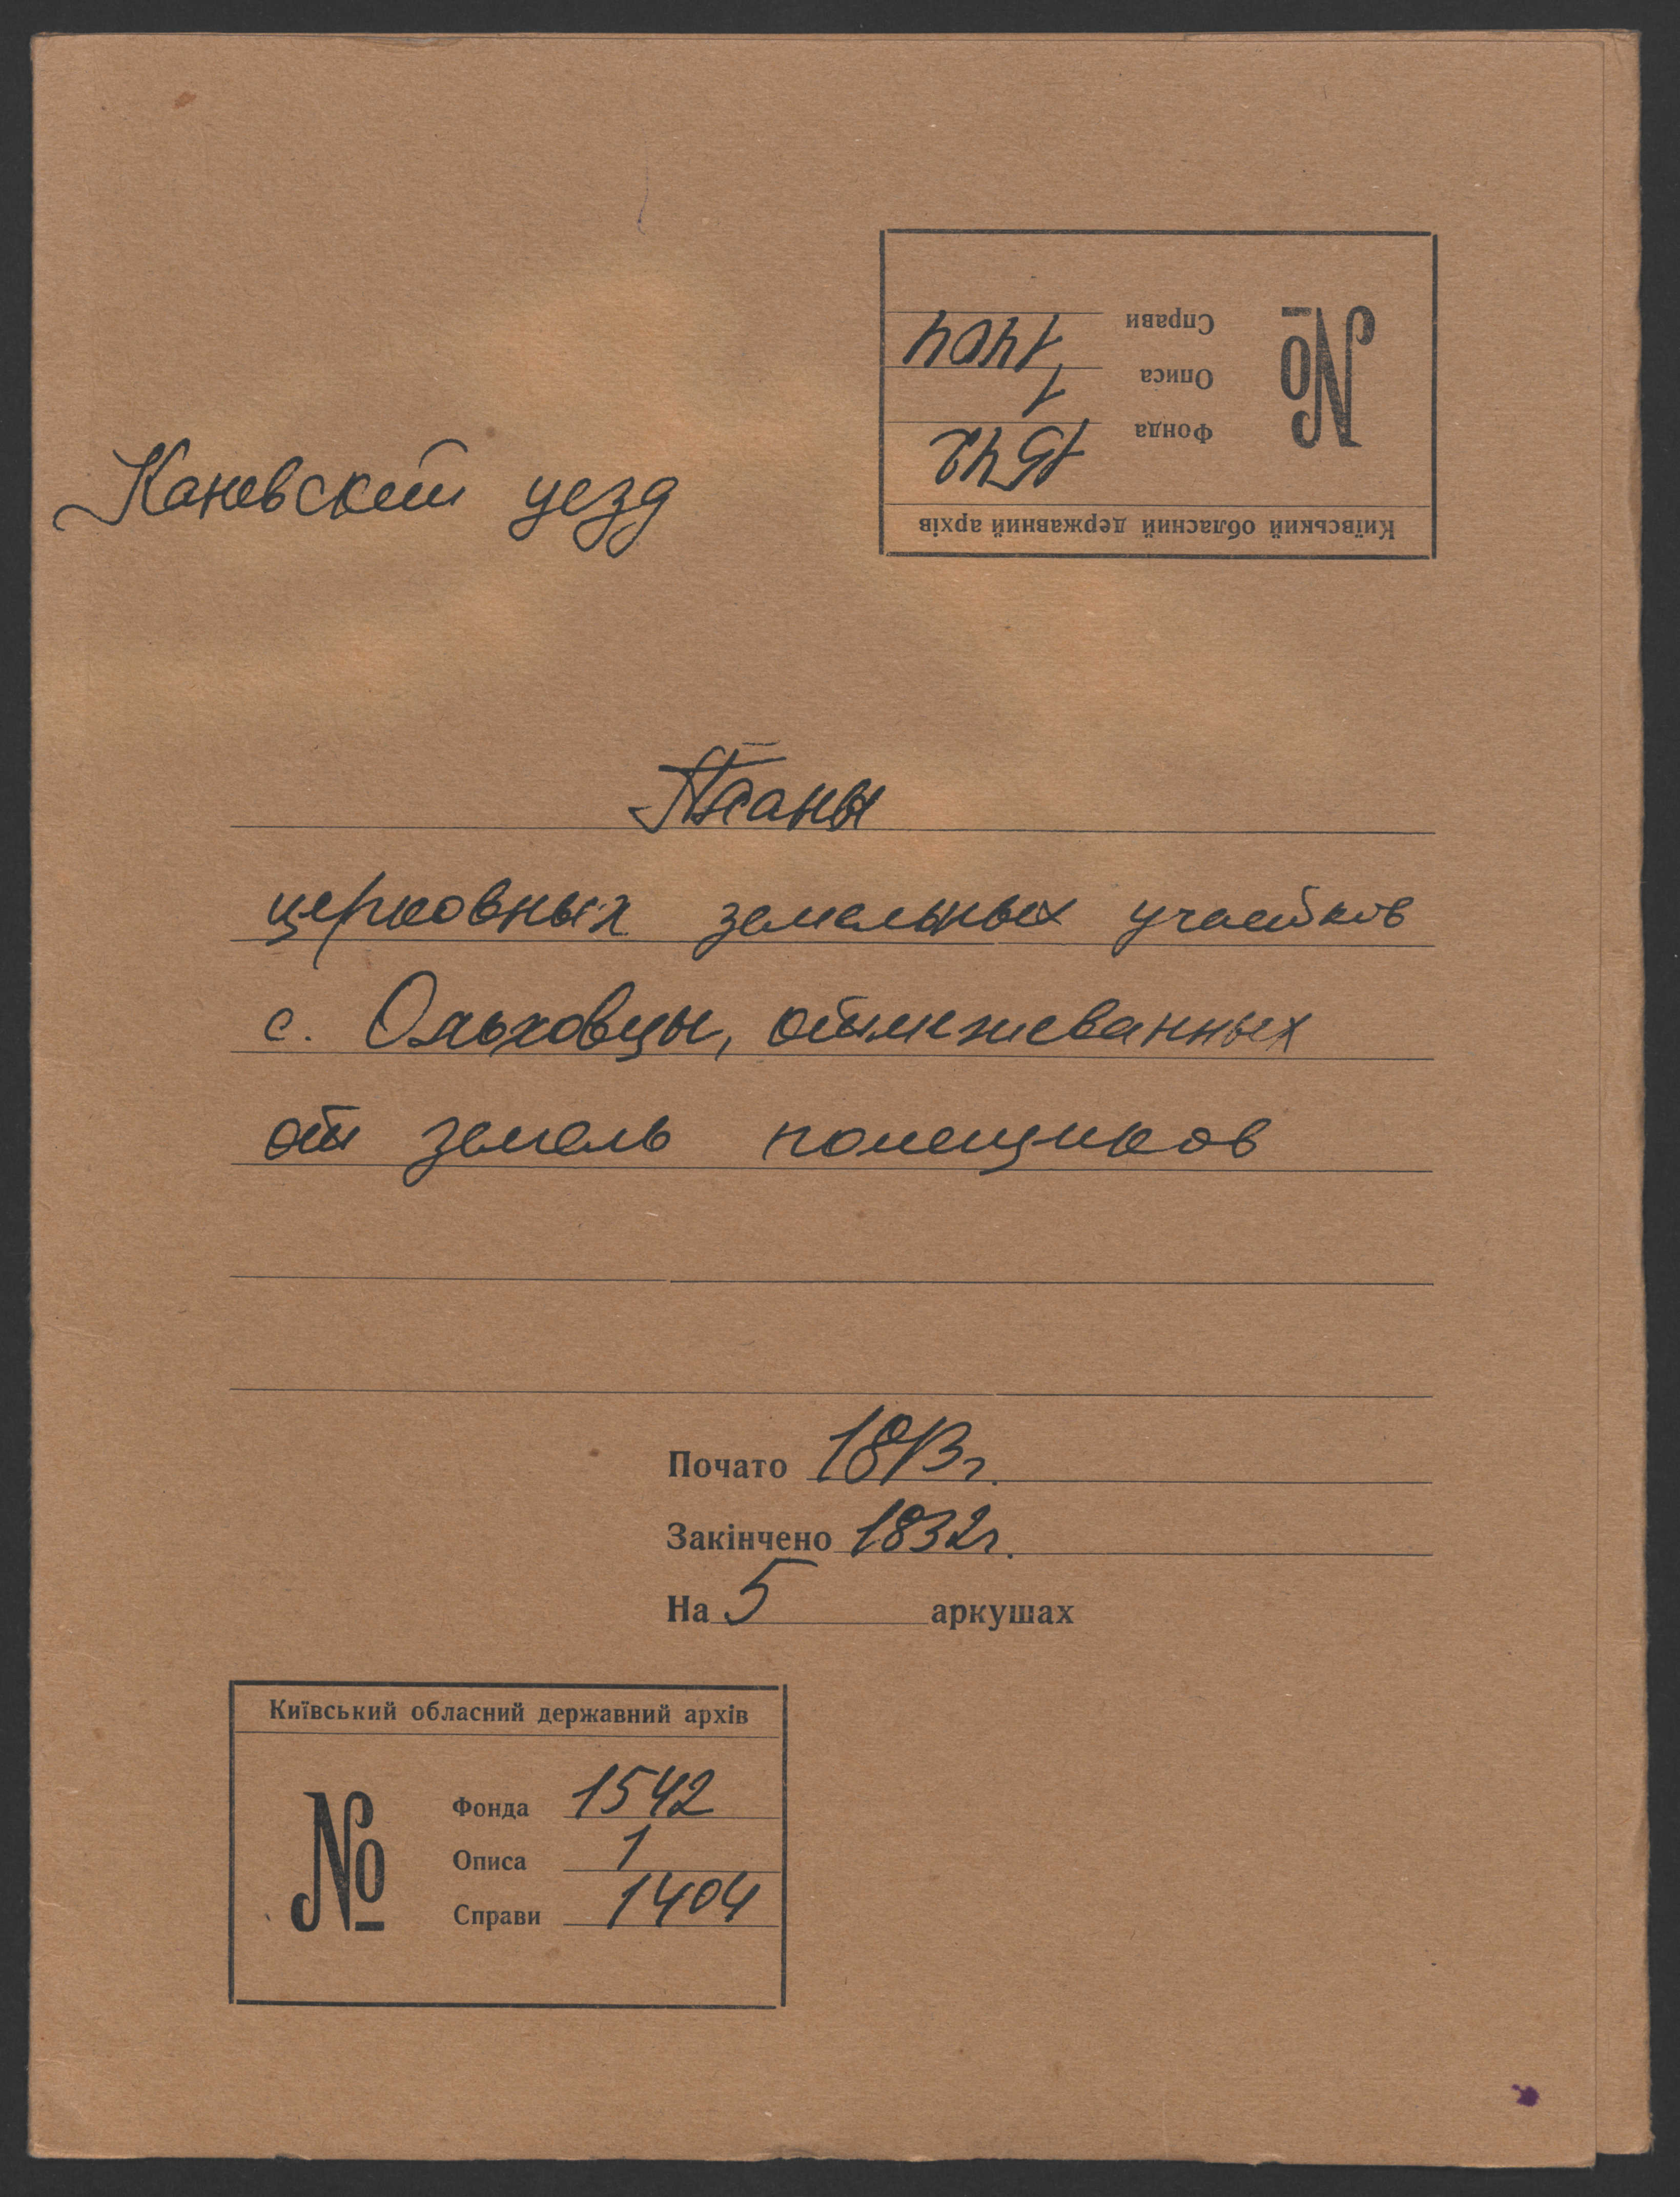 Каневский уезд
№
Справи 1404
Описа 1
Фонда 1542
Київський обласний державний архів
Планы
церковных земельных участков
с. Ольховцы, отмежеванных
от земель помещиков
Почато 1813г.
Закінчено 1832г.
На 5 аркушах
Київський обласний державний архів
№
Фонда 1542
Описа 1
Справи 1404